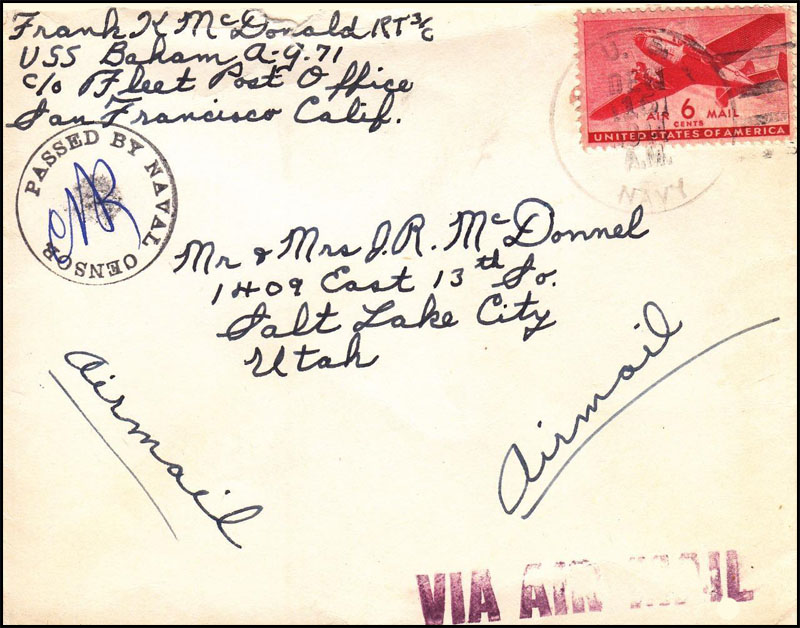 Frank K McDonald RT 3/c
USS Baham A-G. 71
c/o Fleet Post Office
San Francisco Calif.
PASSED BY NAVAL CENSOR
U.S.
A.M.
NAVY
AIR 6 MAIL
CENTS
UNITED STATES OF AMERICA
Mr & Mrs J.R. McDonnel
1409 East 13th So.
Salt Lake City
Utah
Airmail
Airmail
VIA AIR MAIL